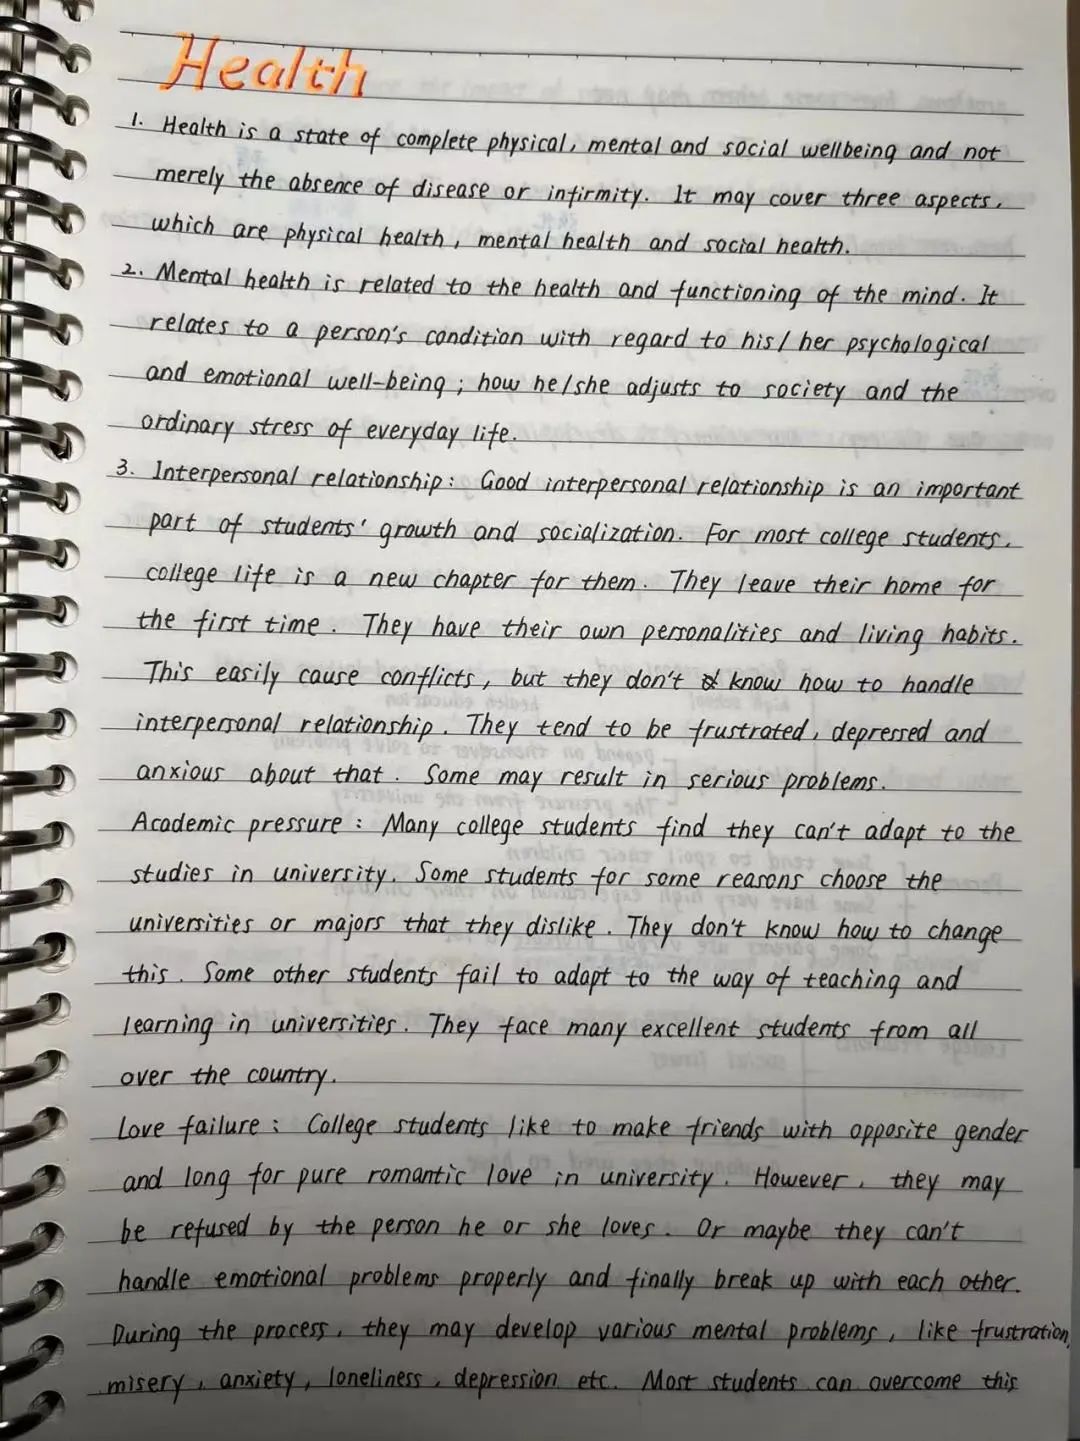 Health
1. Health is a state of complete physical, mental and social wellbeing and not
merely the absence of disease or infirmity. It may cover three aspects,
which are physical health, mental health and social health.
2. Mental health is related to the health and functioning of the mind. It
relates to a person's condition with regard to his/her psychological
and emotional well-being; how he/she adjusts to society and the
ordinary stress of everyday life.
3. Interpersonal relationship: Good interpersonal relationship is an important
part of students' growth and socialization. For most college students,
college life is a new chapter for them. They leave their home for
the first time. They have their own personalities and living habits.
This easily cause conflicts, but they don't know how to handle
interpersonal relationship. They tend to be frustrated, depressed and
anxious about that. Some may result in serious problems.
Academic pressure: Many college students find they can't adapt to the
studies in university. Some students for some reasons choose the
universities or majors that they dislike. They don't know how to change
this. Some other students fail to adapt to the way of teaching and
learning in universities. They face many excellent students from all
over the country.
Love failure: College students like to make friends with opposite gender
and long for pure romantic love in university. However, they may
be refused by the person he or she loves. Or maybe they can't
handle emotional problems properly and finally break up with each other.
During the process, they may develop various mental problems, like frustration,
misery, anxiety, loneliness, depression etc. Most students can overcome this